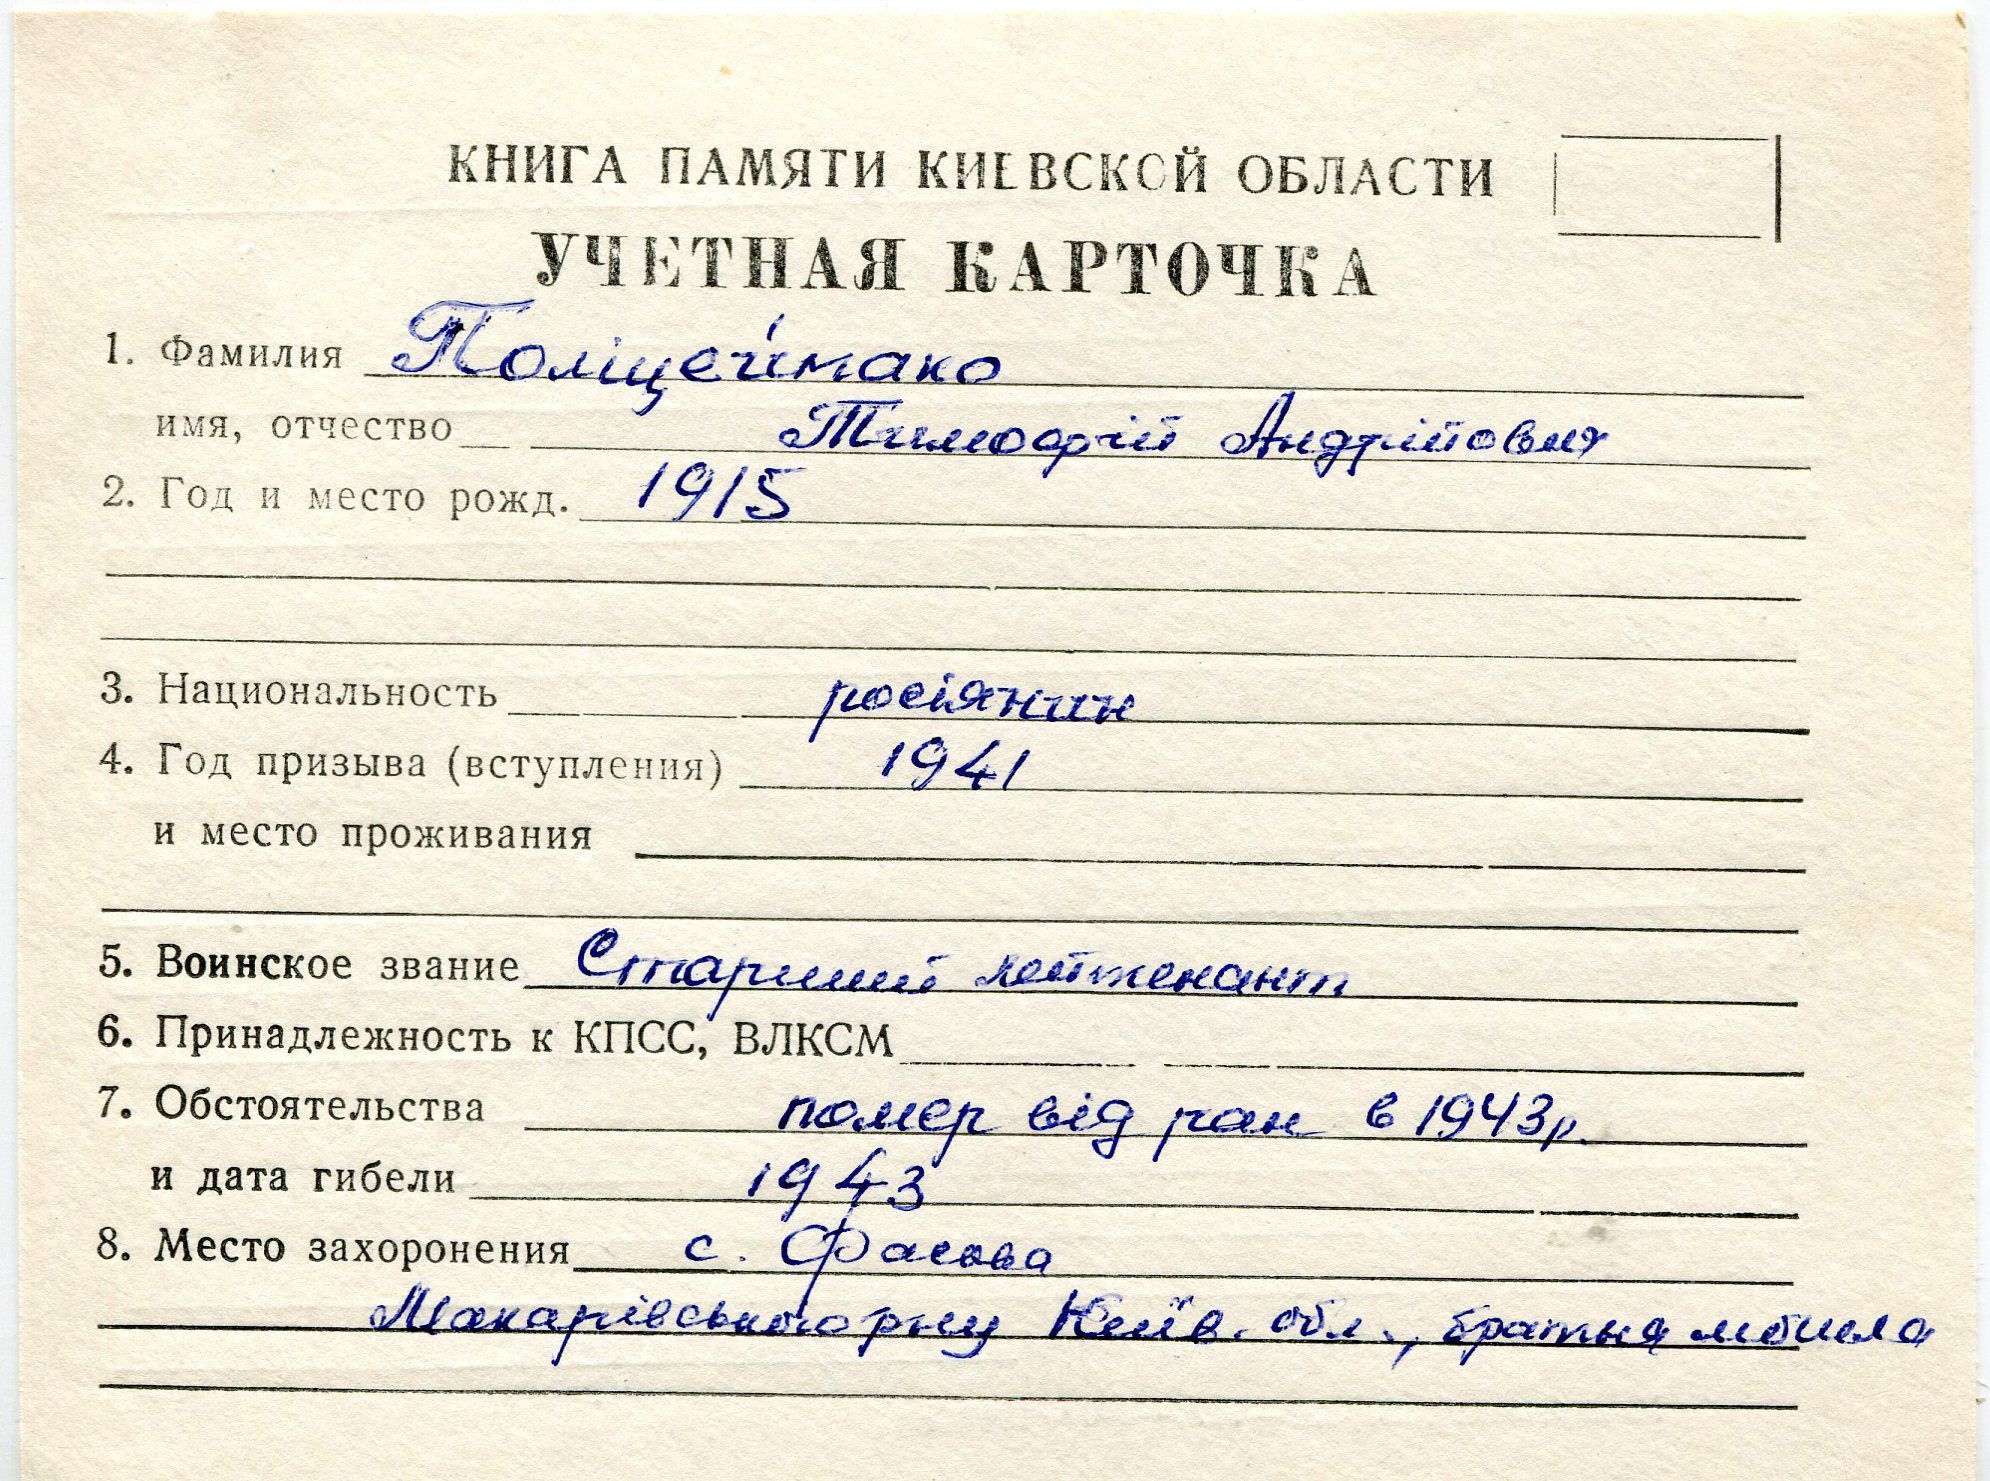 КНИГА ПАМЯТИ КИЕВСКОЙ ОБЛАСТИ
УЧЕТНАЯ КАРТОЧКА
1. Фамилия Поліцеймако
имя, отчество Тимофій Андрійович
2. Год и место рожд. 1915
3. Национальность росіянин
4. Год призыва (вступления) 1941
и место проживания
5. Воинское звание Старший лейтенант
6. Принадлежность к КПСС, ВЛКСМ
7. Обстоятельства помер від ран в 1943р.
и дата гибели 1943
8. Место захоронения с. Фасова
Макарівського р-ну Київ. обл., братня могила